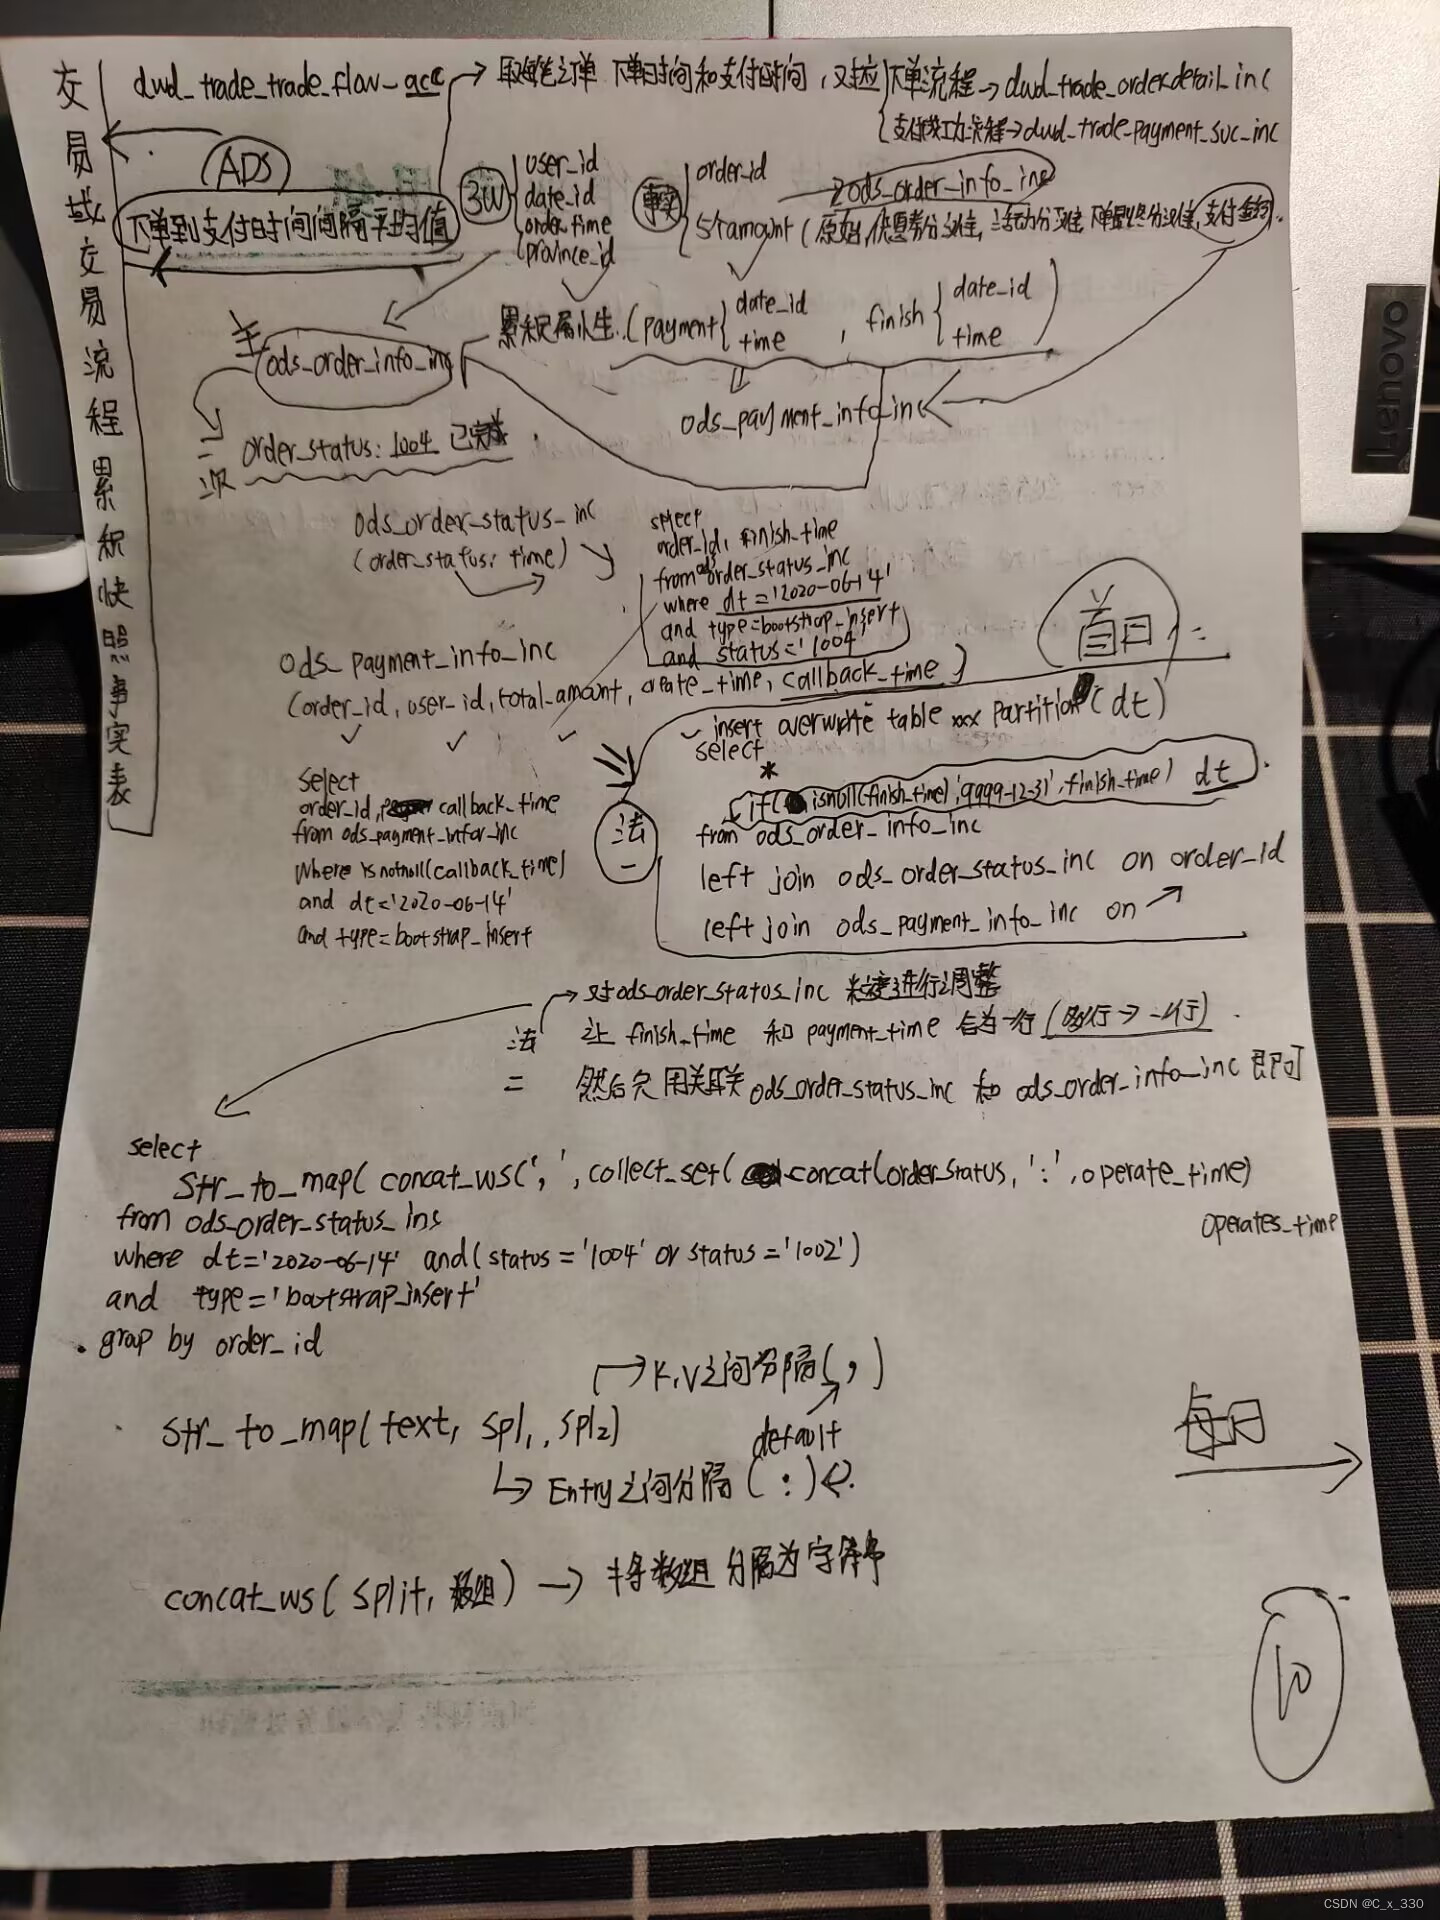 交易域交易流程累积快照事实表
dwd_trade_trade_flow_acc → 取每笔订单 下单时间和支付时间, 对应 { 下单流程→dwd_trade_orderdetail_inc
支付成功流程→dwd_trade_payment_suc_inc
ADS
下单到支付时间间隔平均值
3W { user_id
date_id
order_time
province_id
事实 { order_id
ods_order_info_inc
5个amount (原始, 优惠券分摊, 活动分摊, 下单最终分摊, 支付金额).
累积属性. (payment { date_id
time
, finish { date_id
time )
ods_order_info_inc
ods_payment_info_inc
order_status: 1004 已完成.
ods_order_status_inc
(order_status, time)
select
order_id, finish_time
from ods order_status_inc
where dt='2020-06-14'
and type=bootstrap_insert
and status='1004'
首日:
ods_payment_info_inc
(order_id, user_id, total_amount, create_time, callback_time)
select
order_id, callback_time
from ods_payment_infor_inc
where isnotnull(callback_time)
and dt='2020-06-14'
and type=bootstrap_insert
法一
insert overwrite table xxx partition(dt)
select
*
if( isnull(finish_time),'9999-12-31',finish_time) dt
from ods_order_info_inc
left join ods_order_status_inc on order_id
left join ods_payment_info_inc on
法二
对ods_order_status_inc 粒度进行调整
让 finish_time 和 payment_time 合为一行 (多行→一行).
然后只用关联 ods_order_status_inc 和 ods_order_info_inc 即可
select
str_to_map( concat_ws(',',collect_set( concat(order_status,':',operate_time)
from ods_order_status_ins
operates_time
where dt='2020-06-14' and(status='1004' or status='1002')
and type='bootstrap_insert'
grap by order_id
K,V之间分隔(,)
str_to_map(text, spl1, spl2)
default
Entry之间分隔(:)
每日
concat_ws(split, 数组) → 将数组分隔为字符串
10
lenovo
CSDN @C_x_330